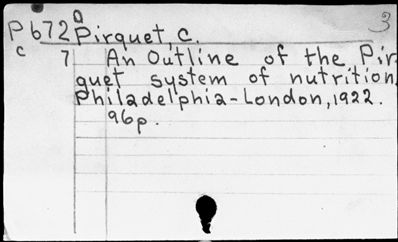 3
Pb72 Pirquet, C.
c 7 An Outline of the Pir-
quet system of nutrition.
Philadelphia-London, 1922.
96p.